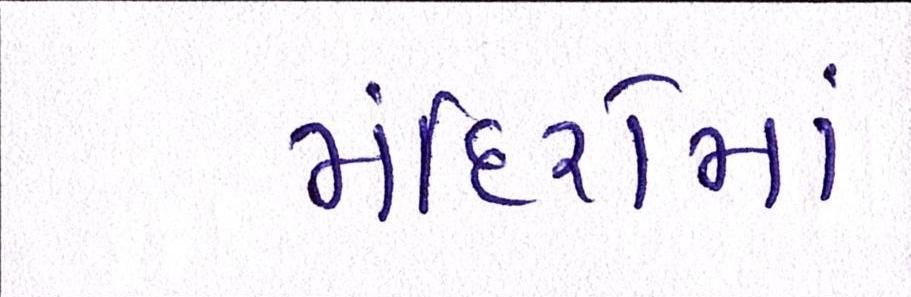 મંદિરોમાં